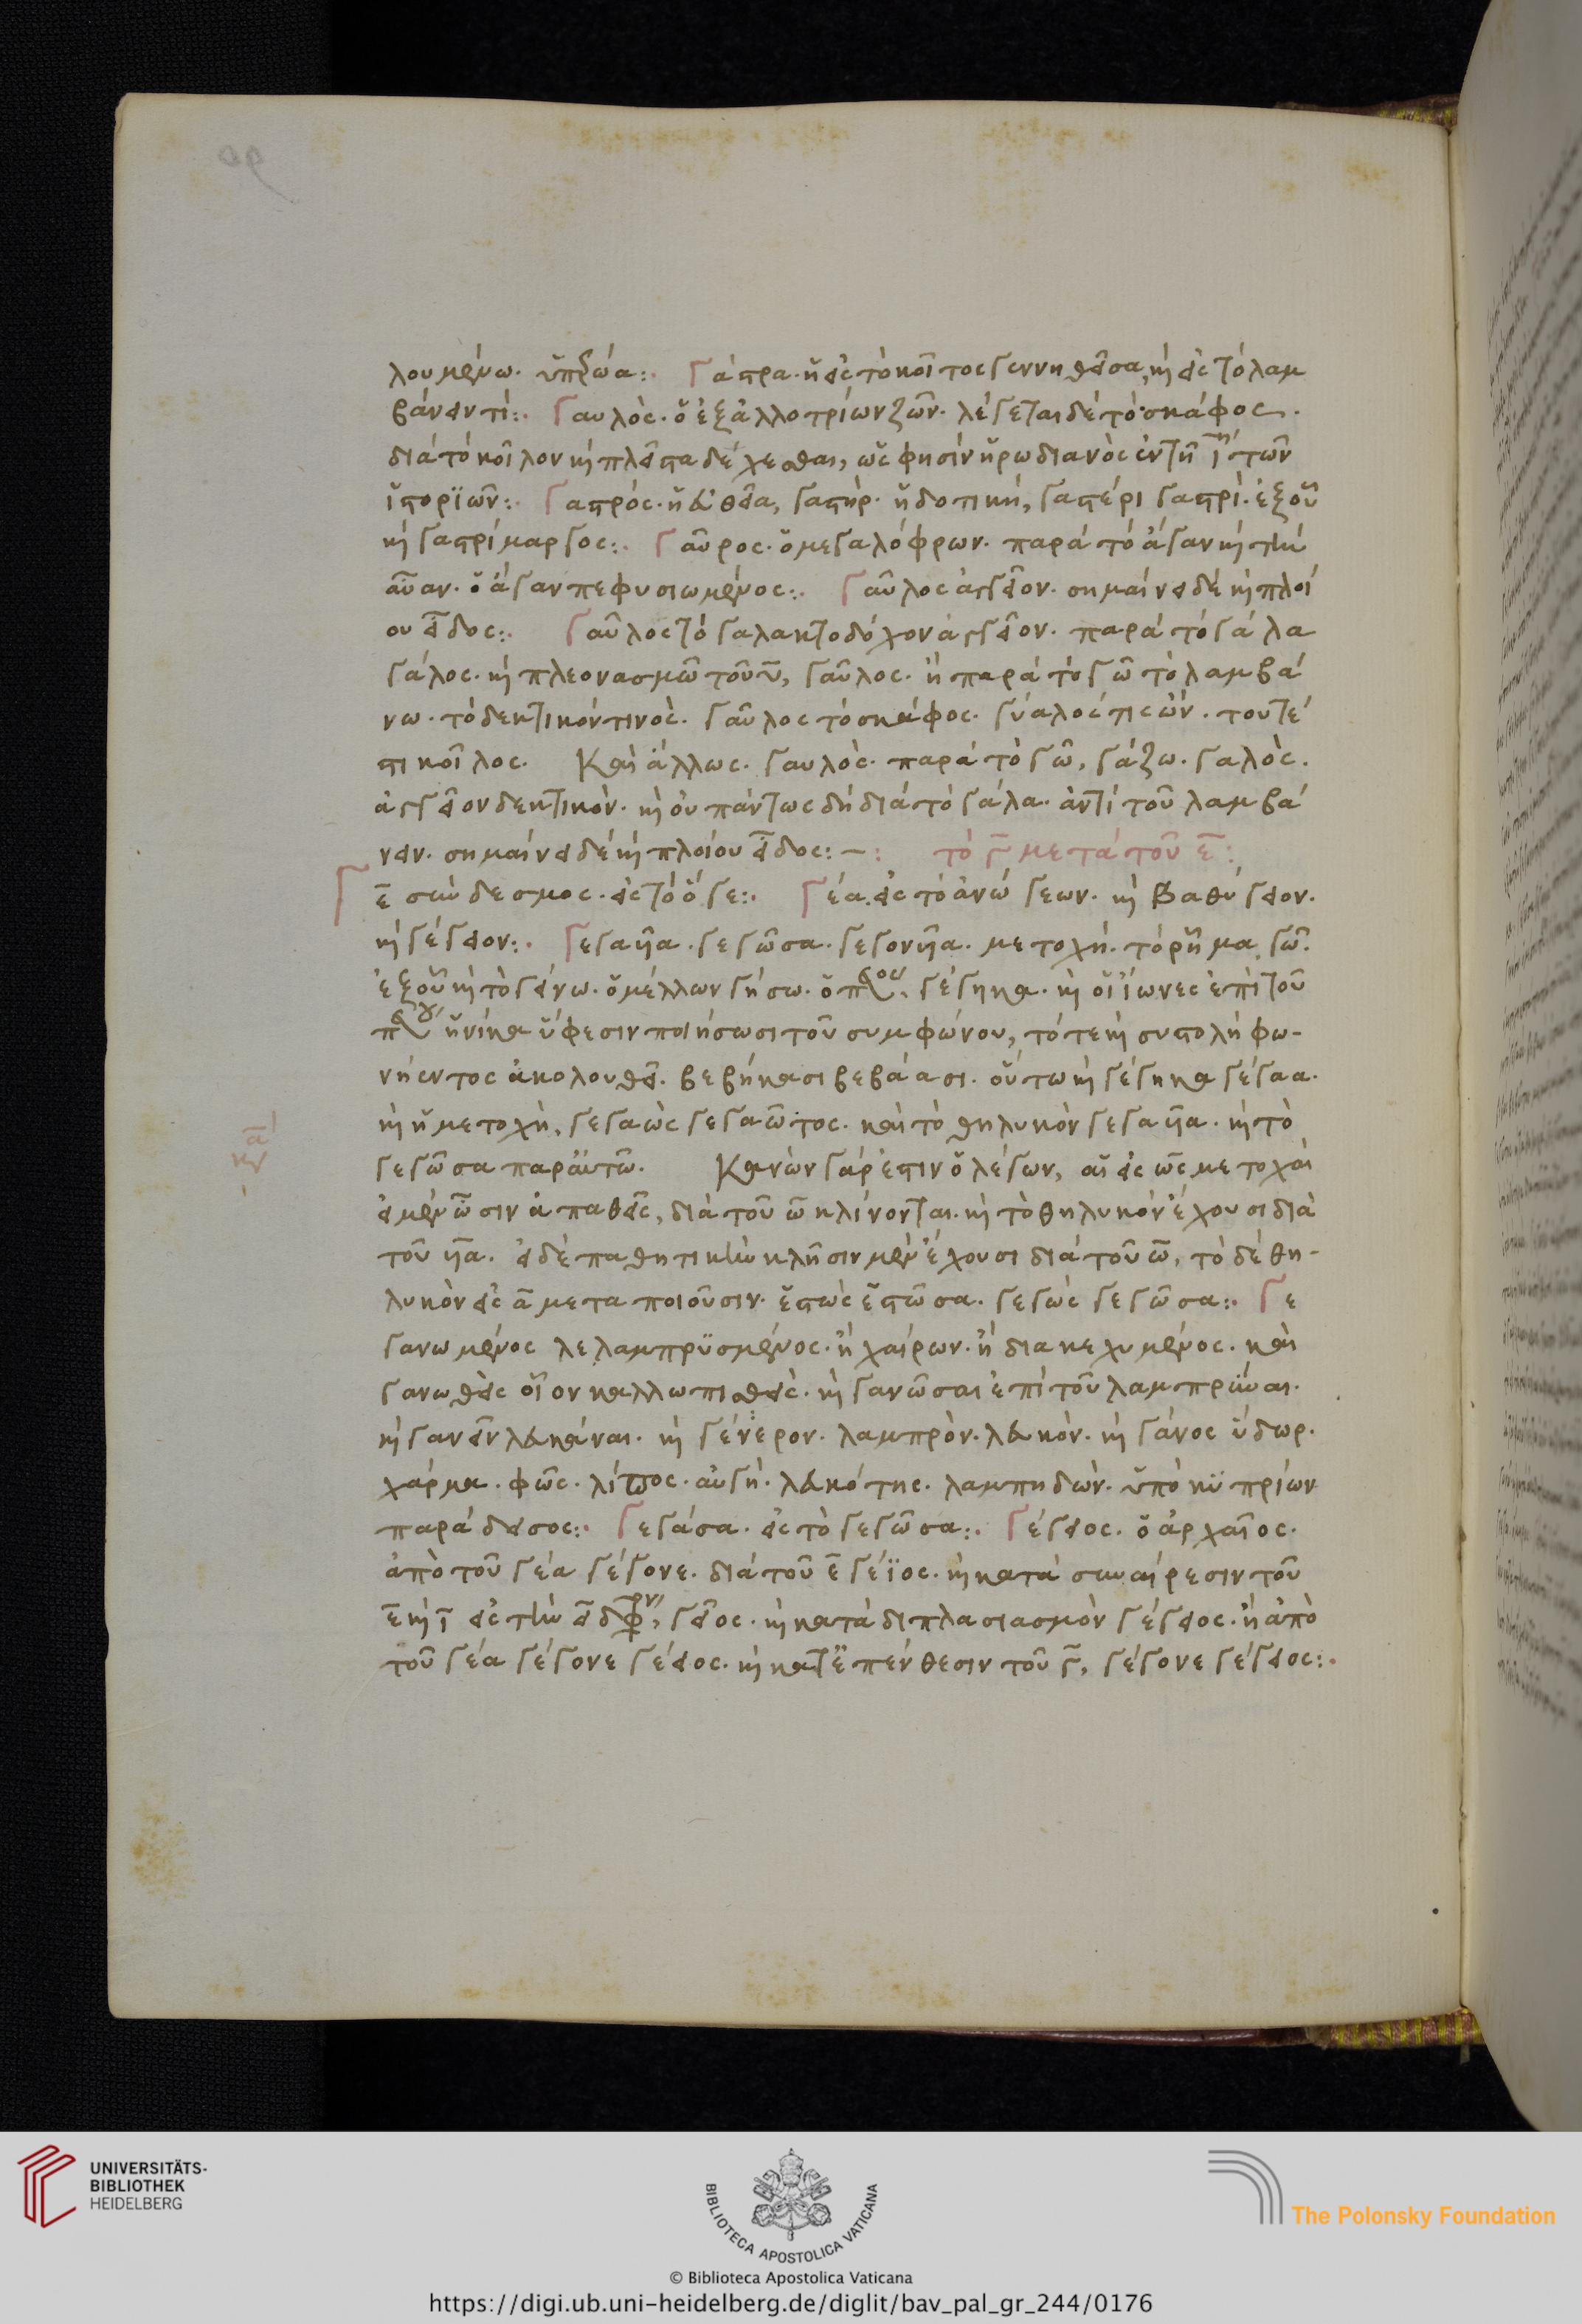 λουμένω. ὑπερῶα:. Γάστρα. ἡ εἰς τὸ κοῖτος γεννηθεῖσα, καὶ εἰς τὸ λαμ
βάνειν τί:. Γαυλὸς. ὁ ἐξ ἀλλοτρίων ζῶν. λέγεται δὲ τὸ σκάφος.
διὰ τὸ κοῖλον καὶ πλεῖστα δέχεσθαι, ὥς φησὶν ἡρωδιανὸς ἐν τῇ ι τῶν
ἱστορϊῶν:. Γαστρός. ἡ εὐθεῖα, γαστήρ. ἡ δοτικὴ, γαστέρι γαστρὶ. ἐξ οὗ
καὶ γαστρίμαργος:. Γαῦρος. ὁ μεγαλόφρων. παρὰ τὸ ἄγαν καὶ τὴν
αὔαν. ὁ ἄγαν πεφυσιωμένος:. Γαῦλος ἀγγεῖον. σημαίνει δὲ καὶ πλοί
ου εἶδος:. Γαῦλος τὸ γαλακτοδόχον ἀγγεῖον. παρὰ τὸ γάλα
γάλος. καὶ πλεονασμῶ τοῦ υ, γαῦλος. ἢ παρὰ τὸ γῶ τὸ λαμβά
νω. τὸ δεκτικόν τινὸς. γαῦλος τὸ σκάφος. γύαλός τις ὤν. τουτέ
στι κοῖλος. Καὶ ἄλλως. γαυλὸς. παρὰ τὸ γῶ, γάζω. γαλὸς.
ἀγγεῖον δεκτικὸν. καὶ οὐ πάντως δὴ διὰ τὸ γάλα. ἀντὶ τοῦ λαμβά
νειν. σημαίνει δὲ καὶ πλοίου εἶδος:– τὸ γ μετὰ τοῦ ε:
Γε σύνδεσμος. εἰς τὸ ὅγε:. Γέα. εἰς τὸ ἀνώγεων. καὶ βαθύγειον.
καὶ γέγειον:. Γεγαῦα. γεγῶσα. γεγονῦα. μετοχή. τὸ ῥῆμα γῶ.
ἐξ οὗ καὶ τὸ γείνω. ὁ μέλλων γήσω. ὁ παρακείμενος, γέγηκα. καὶ οἱ ἴωνες ἐπὶ τοῦ
παρακειμένου ἡνίκα ὕφεσιν ποιήσωσι τοῦ συμφώνου, τότε καὶ συστολὴ φω-
νήεντος ἀκολουθεῖ. βεβήκασι βεβάασι. οὕτω καὶ γέγηκα γέγαα.
καὶ ἡ μετοχὴ, γεγαὼς γεγαῶτος. καὶ τὸ θηλυκὸν γεγαῦα. καὶ τὸ
γεγῶσα παρ' αὐτῶ. Κανὼν γάρ ἐστιν ὁ λέγων, αἱ εἰς ως μετοχαὶ
εἰ μὲν ὦσιν ἀπαθεῖς, διὰ τοῦ ω κλίνονται. καὶ τὸ θηλυκὸν ἔχουσι διὰ
τοῦ υα. εἰ δὲ παθητικὴν κλῆσιν μὲν ἔχουσι διὰ τοῦ ω, τὸ δὲ θη-
λυκὸν εἰς α μεταποιοῦσιν. ἑστὼς ἑστῶσα. γεγὼς γεγῶσα:. Γε
γανωμένος λελαμπρϋσμένος. ἢ χαίρων. ἢ διακεχυμένος. καὶ
γανωθεὶς οἷον καλλωπισθεὶς. καὶ γανῶσαι ἐπὶ τοῦ λαμπρῦναι.
καὶ γανεῖν λευκάναι. καὶ γένερον. λαμπρὸν. λευκὸν. καὶ γάνος ὕδωρ.
χάρμα. φῶς. λίπος. αὐγὴ. λευκότης. λαμπηδὼν. ὑπὸ κϋπρίων
παράδεισος:. Γεγάσα. εἰς τὸ γεγῶσα:. Γέγειος. ὁ ἀρχαῖος.
ἀπὸ τοῦ γέα γέγονε. διὰ τοῦ ε γέϊος. καὶ κατὰ συναίρεσιν τοῦ
ε καὶ ι εἰς τὴν ει δίφθογγον, γεῖος. καὶ κατὰ διπλασιασμὸν γέγειος. ἢ ἀπὸ
τοῦ γέα γέγονε γέειος. καὶ κατ' ἐπένθεσιν τοῦ γ, γέγονε γέγειος:.
UNIVERSITÄTS-
BIBLIOTHEK
HEIDELBERG
BIBLIOTECA APOSTOLICA VATICANA
The Polonsky Foundation
© Biblioteca Apostolica Vaticana
https://digi.ub.uni-heidelberg.de/diglit/bav_pal_gr_244/0176